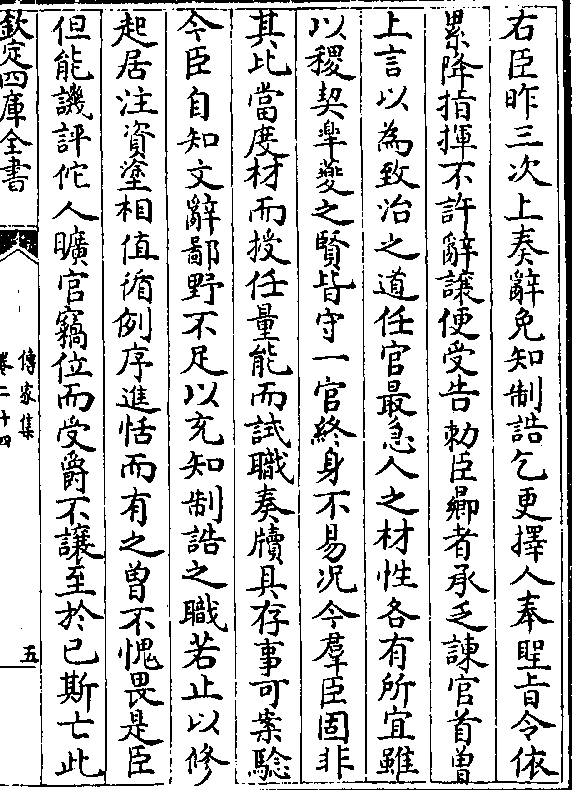 右臣昨三次上奏辭免知制誥乞更擇人奉聖旨令依
累降指揮不許辭讓便受告勅臣曏者承乏諫官首曽
上言以為致治之道任官最急人之材性各有所宜雖
以稷契皐夔之賢皆守一官終身不易况今羣臣固非
其比當度材而授任量能而試職奏牘具存事可案驗
今臣自知文辭鄙野不足以充知制誥之職若止以修
起居注資塗相值循例序進恬而有之曽不愧畏是臣
但能譏評佗人曠官竊位而受爵不讓至於已斯亡此
欽定四庫全書
傳家集
卷二十四
五